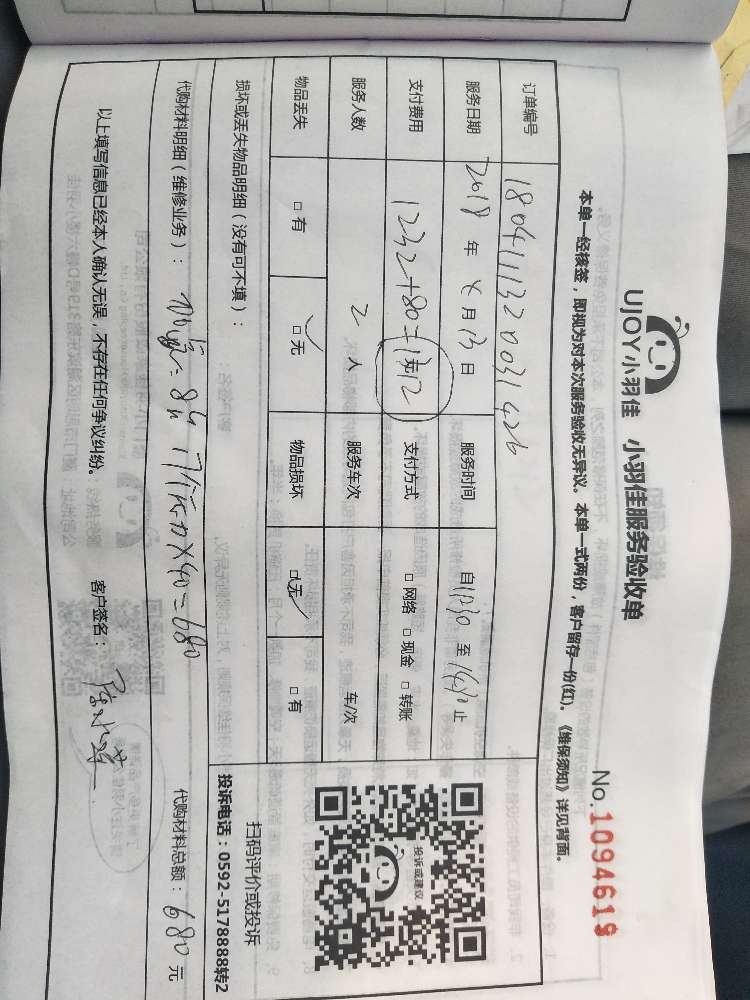 UJOY小羽佳 小羽佳服务验收单
No.1094619
本单一经核签，即视为对本次服务验收无异议。本单一式两份，客户留存一份(红)。《维保须知》详见背面。
订单编号 1804111320031426
服务日期 2018 年 4 月 13 日 服务时间 自 至 止
支付费用 1232+80=1312 元 支付方式 □ 网络 □ 现金 □ 转账
服务人数 2 人 服务车次 车/次
物品丢失 □ 有 □ 无 物品损坏 □ 无 □ 有
投诉或建议
扫码评价或投诉
投诉电话：0592-5178888转2
损坏或丢失物品明细（没有可不填）：
代购材料明细（维修业务）： =8 ×40=680 代购材料总额：680 元
以上填写信息已经本人确认无误，不存在任何争议纠纷。 客户签名：